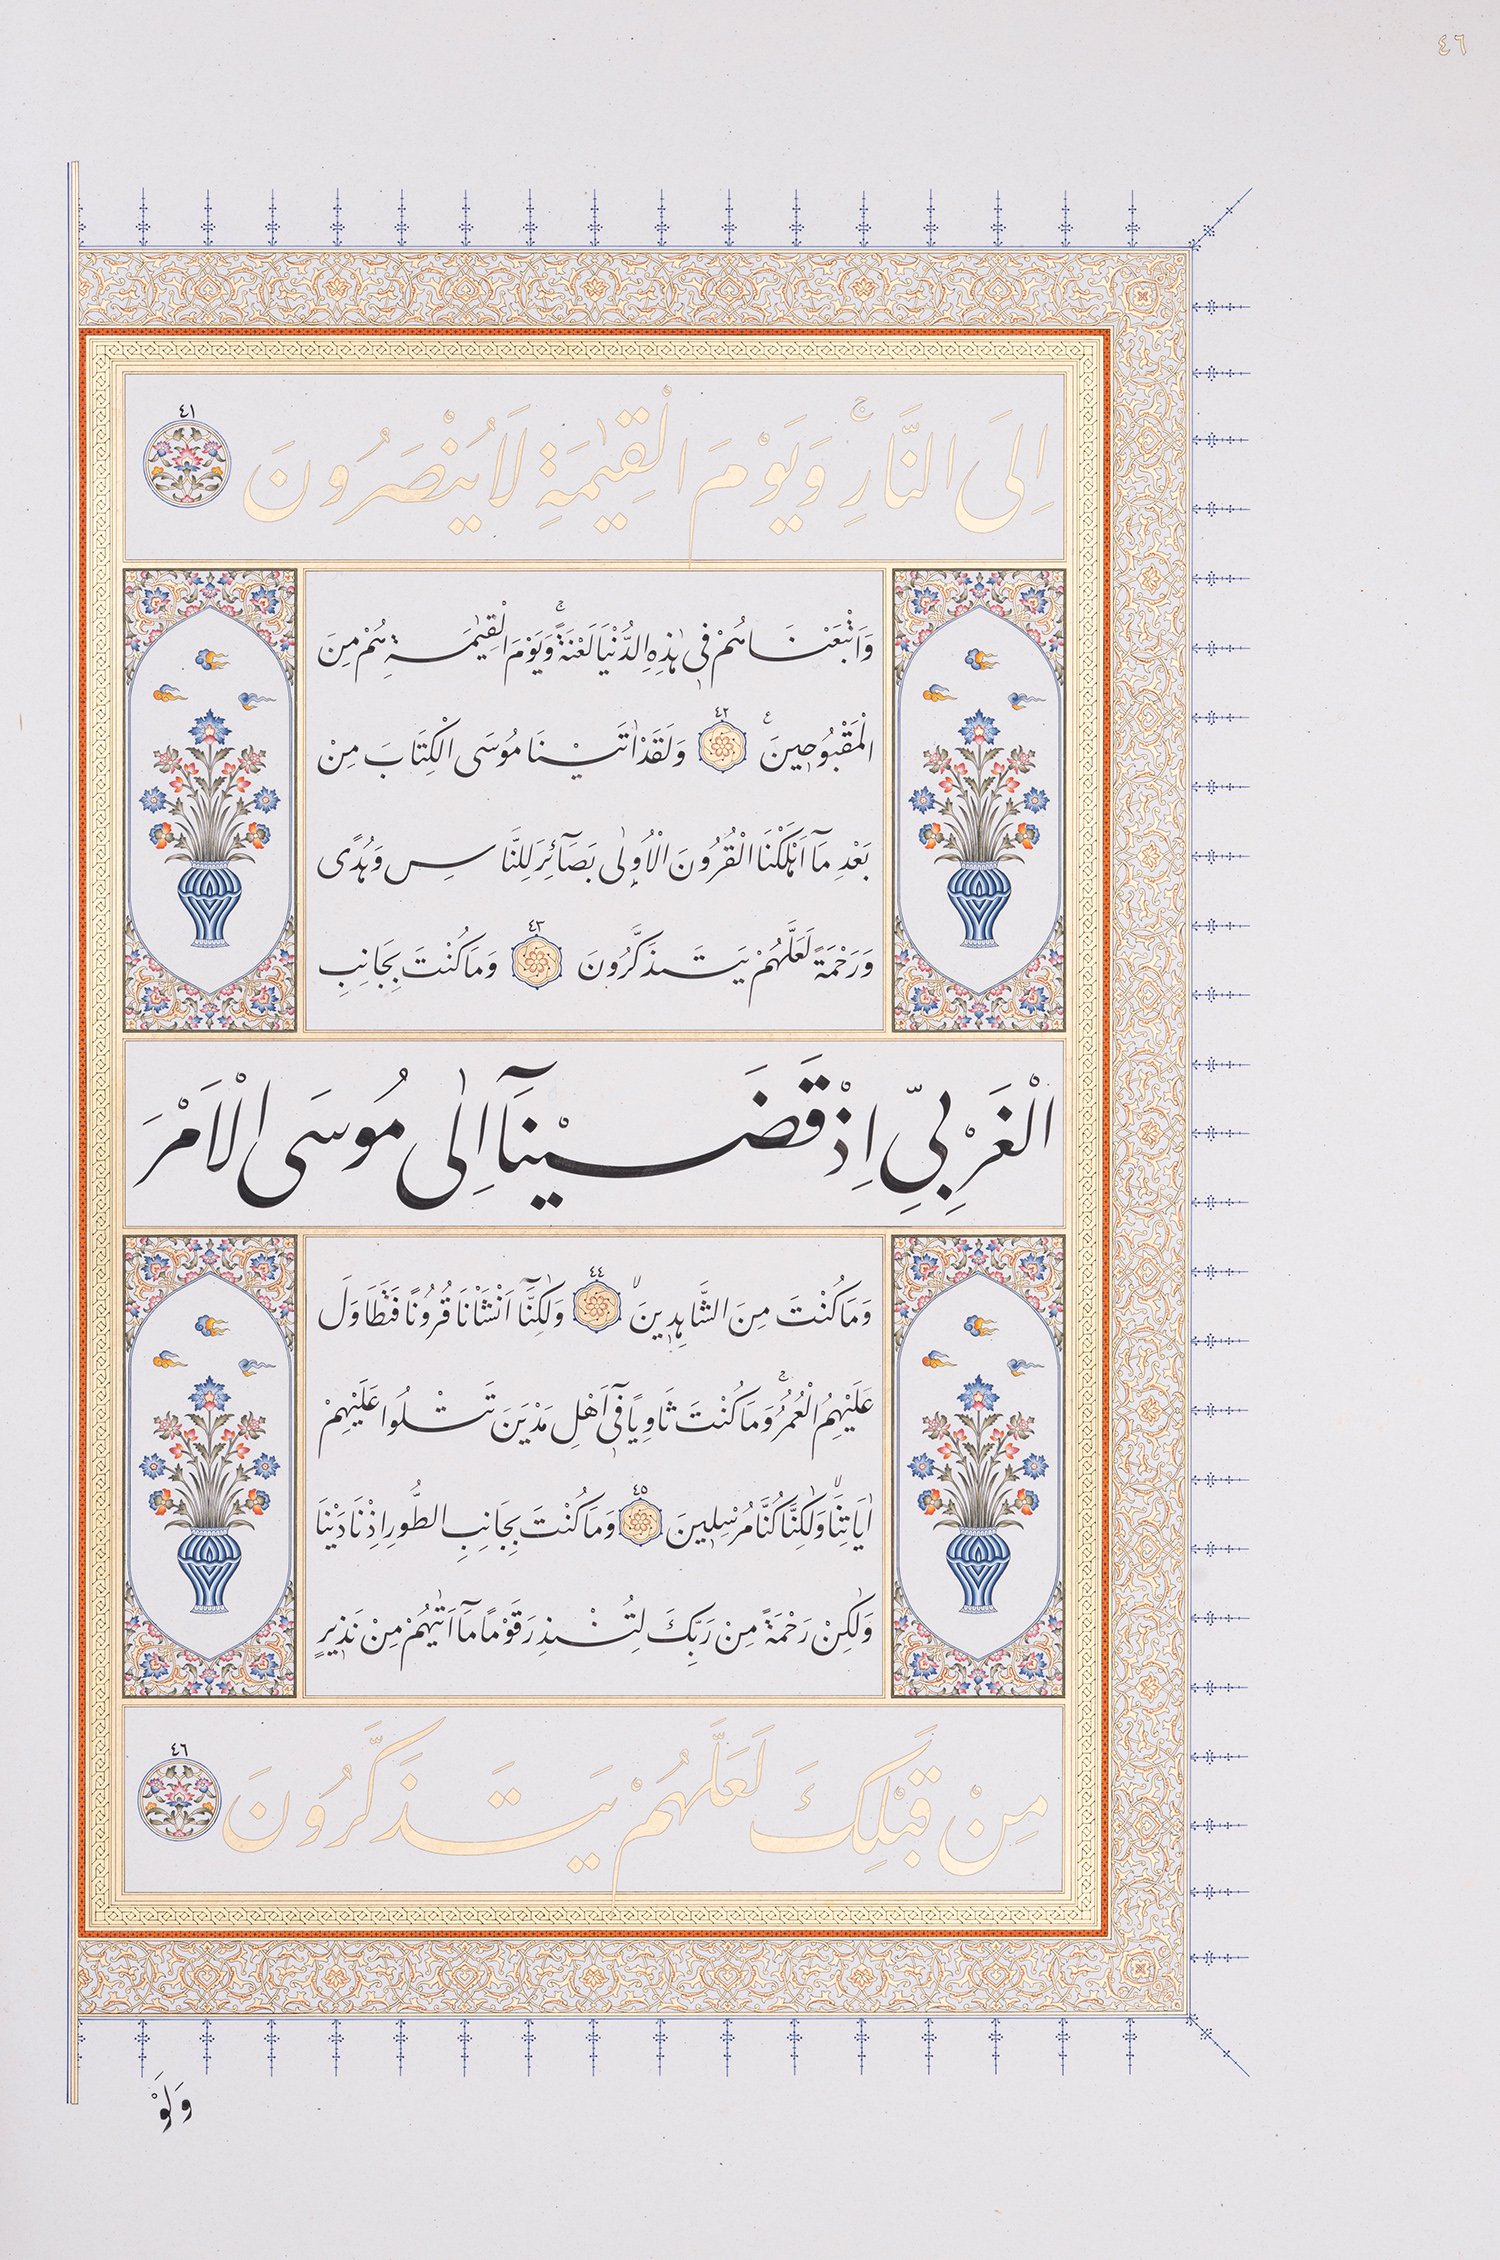 ٤٦
اِلَى النَّارِۚ وَيَوْمَ الْقِيٰمَةِ لَا يُنْصَرُونَ ٤١
وَاَتْبَعْنَاهُمْ فٖى هٰذِهِ الدُّنْيَا لَعْنَةًۚ وَيَوْمَ الْقِيٰمَةِ هُمْ مِنَ
الْمَقْبُوحٖينَ ع ٤٢ وَلَقَدْ اٰتَيْنَا مُوسَى الْكِتَابَ مِنْ
بَعْدِ مَٓا اَهْلَكْنَا الْقُرُونَ الْاُو۫لٰى بَصَٓائِرَ لِلنَّاسِ وَهُدًى
وَرَحْمَةً لَعَلَّهُمْ يَتَذَكَّرُونَ ٤٣ وَمَا كُنْتَ بِجَانِبِ
الْغَرْبِىِّ اِذْ قَضَيْنَٓا اِلٰى مُوسَى الْاَمْرَ
وَمَا كُنْتَ مِنَ الشَّاهِدٖينَۙ ٤٤ وَلٰكِنَّٓا اَنْشَاْنَا قُرُونًا فَتَطَاوَلَ
عَلَيْهِمُ الْعُمُرُۚ وَمَا كُنْتَ ثَاوِيًا فٖٓى اَهْلِ مَدْيَنَ تَتْلُوا عَلَيْهِمْ
اٰيَاتِنَاۙ وَلٰكِنَّا كُنَّا مُرْسِلٖينَ ٤٥ وَمَا كُنْتَ بِجَانِبِ الطُّورِ اِذْ نَادَيْنَا
وَلٰكِنْ رَحْمَةً مِنْ رَبِّكَ لِتُنْذِرَ قَوْمًا مَٓا اَتٰيهُمْ مِنْ نَذٖيرٍ
مِنْ قَبْلِكَ لَعَلَّهُمْ يَتَذَكَّرُونَ ٤٦
وَلَوْ